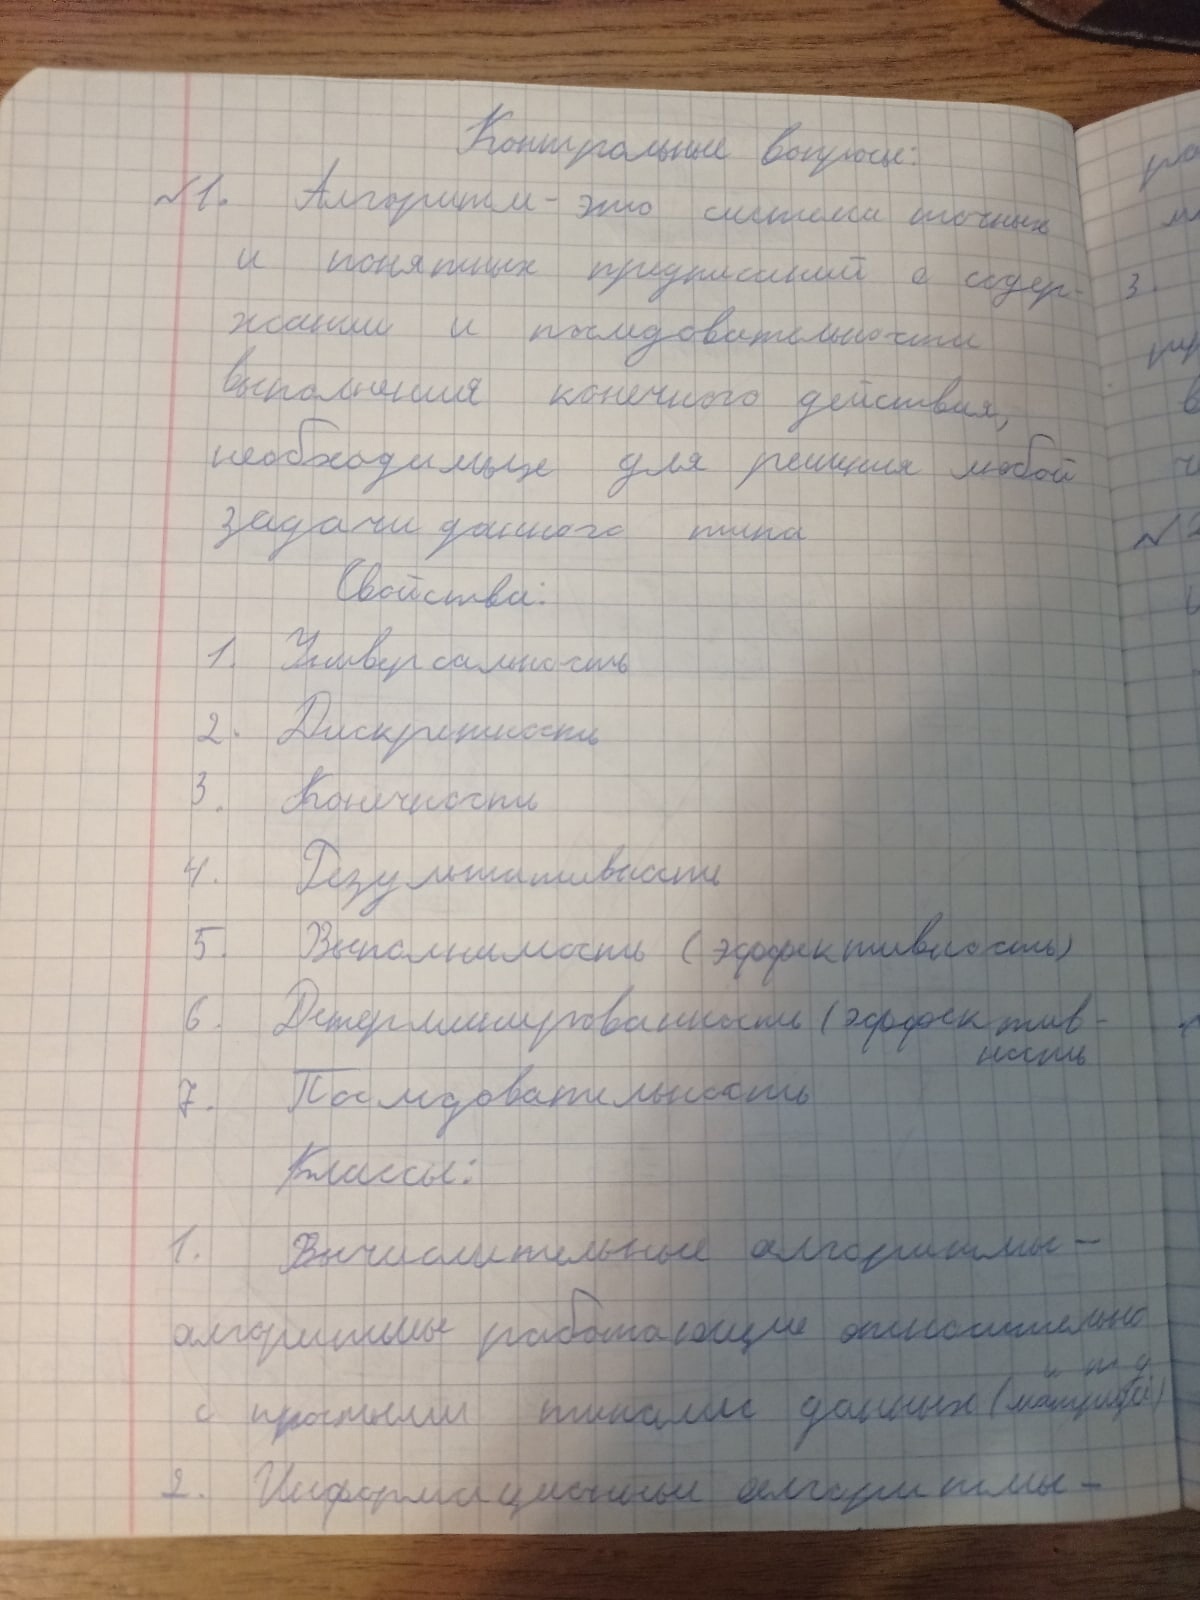 Контрольные вопросы:
№1. Алгоритм - это система точных
и понятных предписаний о содер-
жании и последовательности
выполнения конечного действия,
необходимых для решения любой
задачи данного типа
Свойства:
1. Универсальность
2. Дискретность
3. Конечность
4. Результативность
5. Выполнимость (эффективность)
6. Детерминированность (эффектив-
ность
7. Последовательность
Классы:
1. Вычислительные алгоритмы -
алгоритмы работающие относительно
с простыми типами данных (матрица
и т д)
2. Информационные алгоритмы -
3.
№2